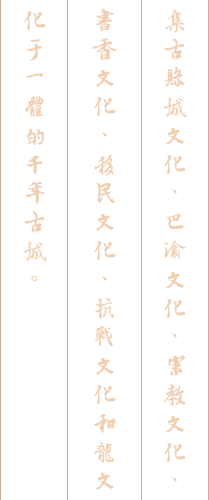 集古縣城文化、巴渝文化、宗教文化、
書香文化、移民文化、抗戰文化和龍文
化于一體的千年古城。